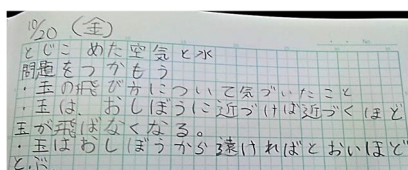 10/20 (金)
とじこめた空気と水
問題をつかもう
・玉の飛びかについて気づいたこと
・玉は、おしぼうに近づけば近づくほど
玉が飛ばなくなる。
・玉はおしぼうから遠ければとおいほど
とぶ